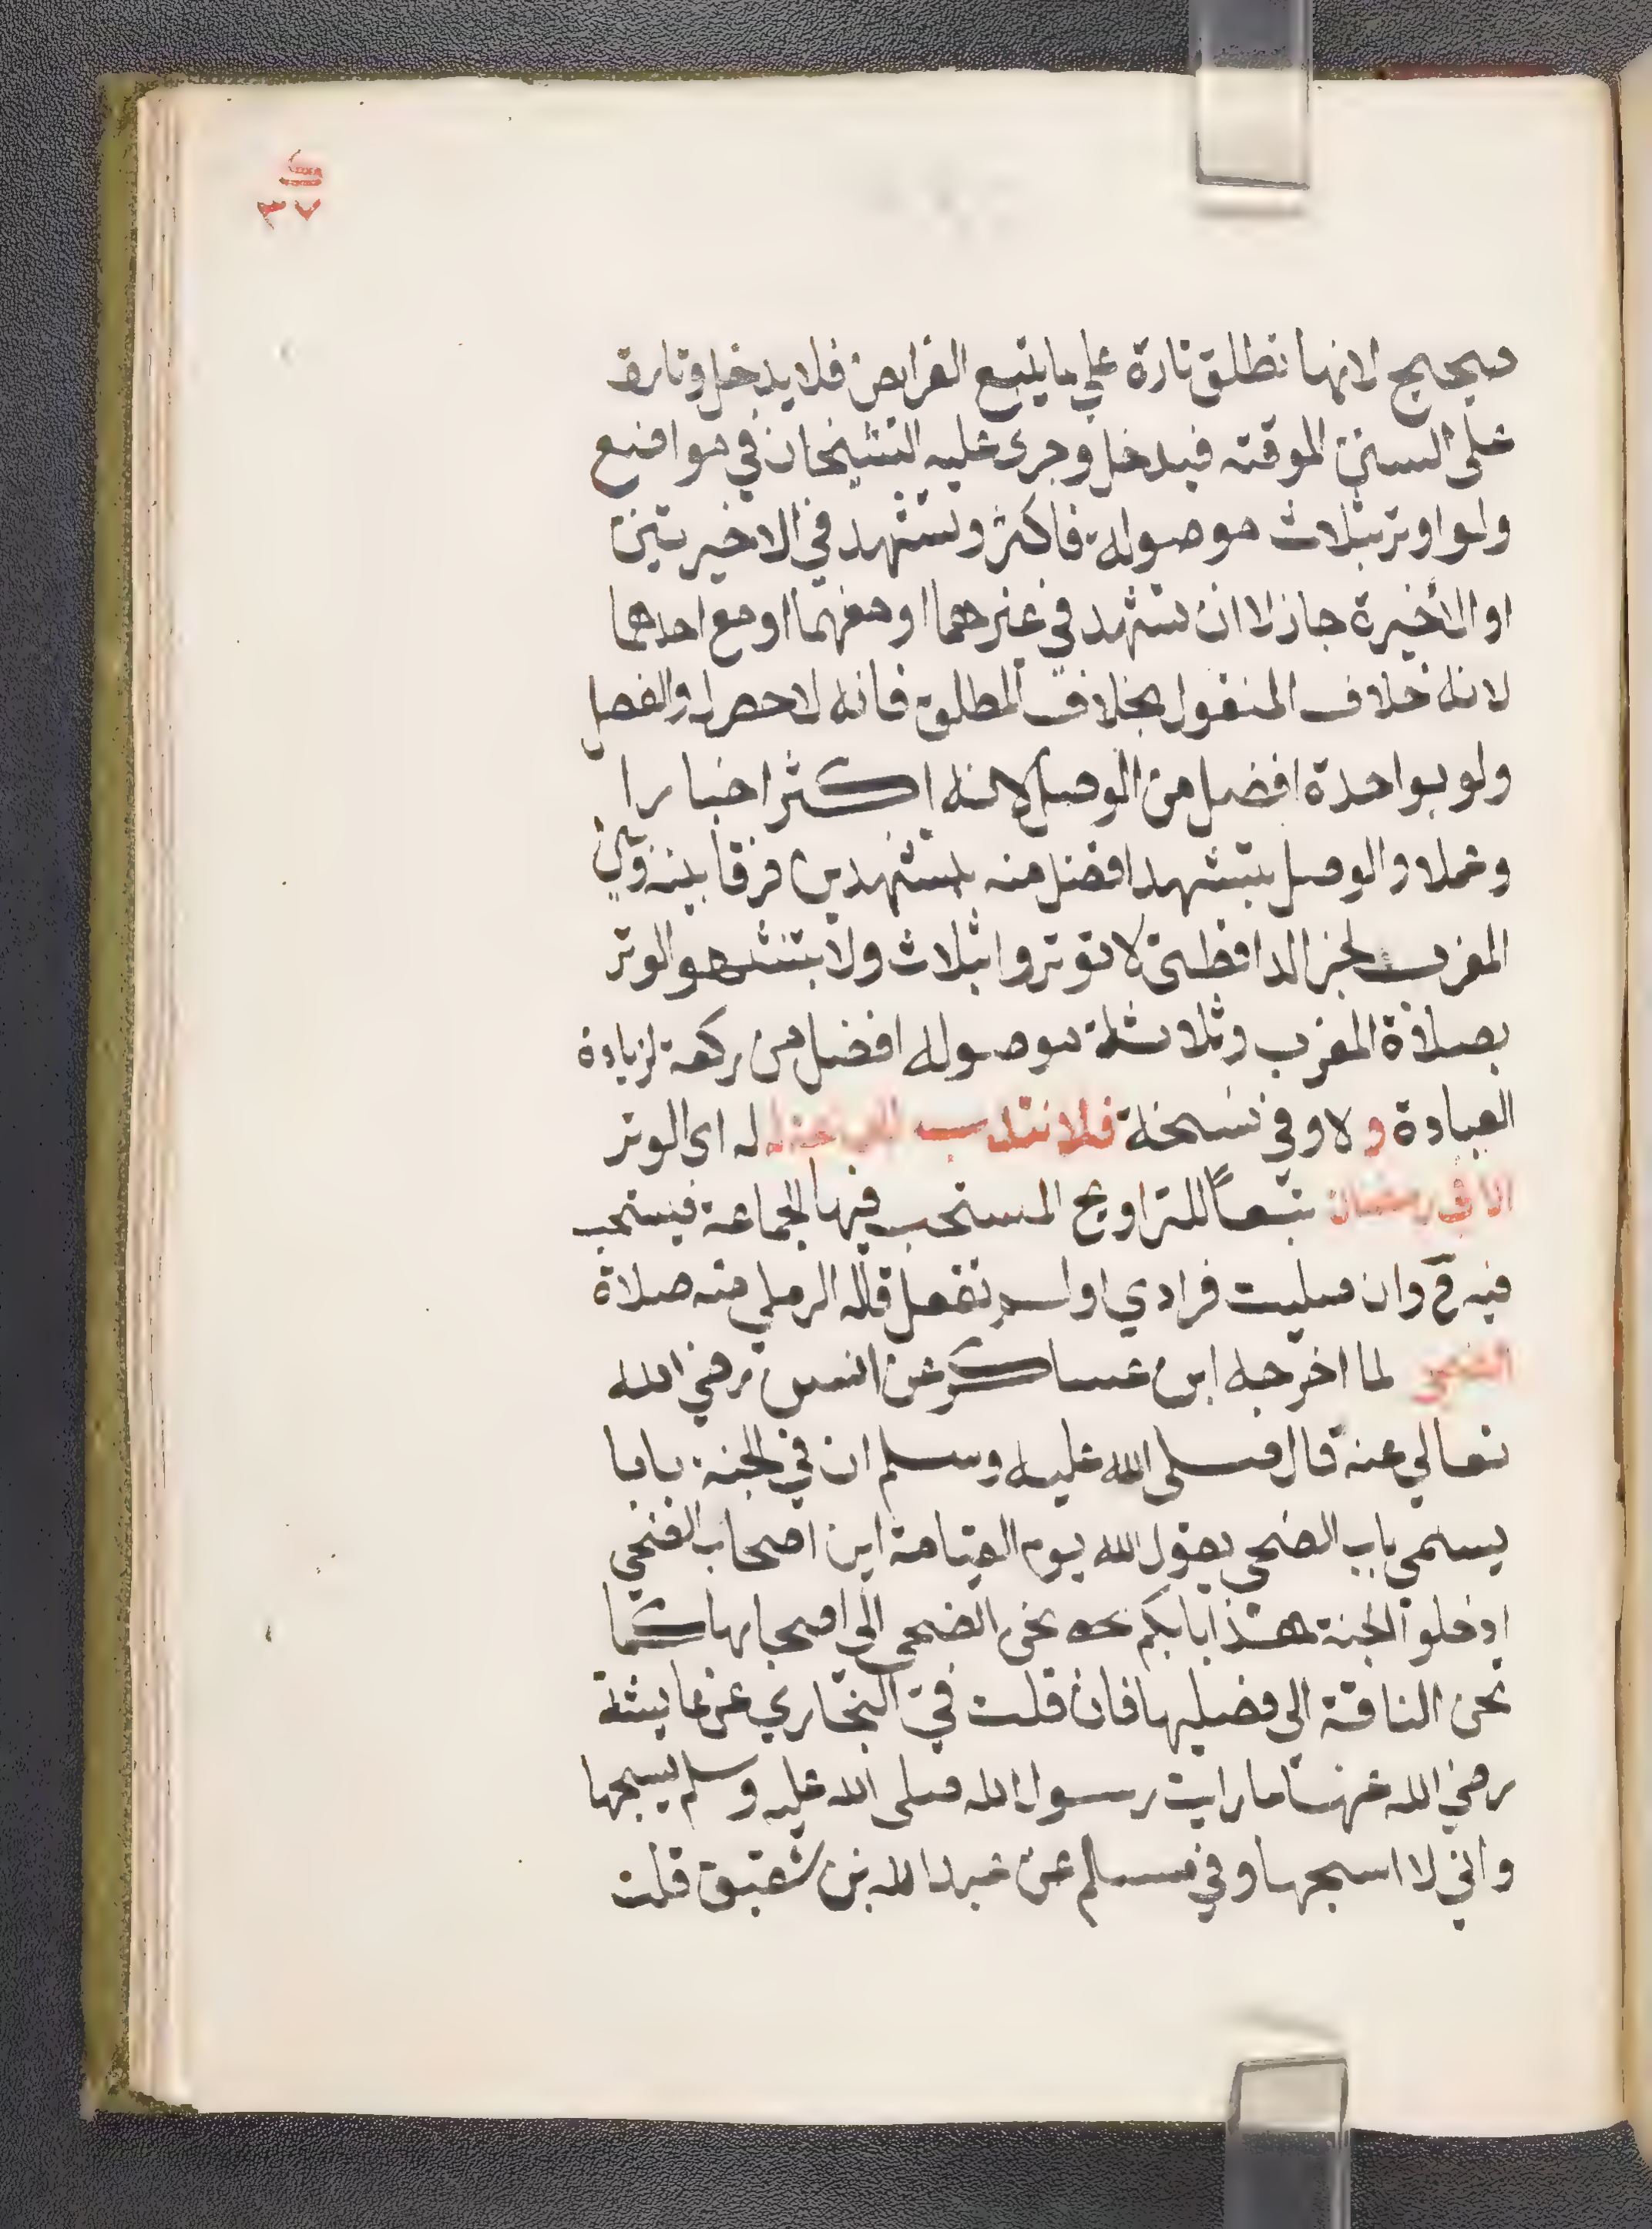 ك
٣٧
صحيح لانها تطلق تارة على ما يتبع الفرايض فلا يدخل وتارة
على السنن الموقته فيدخل وجرى عليه الشيخان في مواضع
ولو اوتر بثلاث موصولة فاكثر وتشهد في الاخيرتين
او الاخيرة جاز لا ان تشهد في غيرهما او معهما او مع احدهما
لانه خلاف المنقول بخلاف المطلق فانه لا حصر له والفصل
ولو بواحدة افضل من الوصل لانه اكثر اخبارا
وعملا والوصل بتشهد افضل منه بتشهدين فرقا بينه وبين
المغرب لخبر الدارقطني لا توتروا بثلاث ولا تشبهوا الوتر
بصلاة المغرب وثلاثة موصوله افضل من ركعة لزيادة
العبادة ولا وفي نسخة فلا تندب الجماعة له اي الوتر
الا في رمضان تبعاً للتراويح المستحب فيها الجماعة فيستحب
فيه وان صليت فرادي او لم تفعل قاله الرملي منه صلاة
الضحى لما اخرجه ابن عساكر عن انس رضي الله
تعالي عنه قال صلى الله عليه وسلم ان في الجنة بابا
يسمى باب الضحي يقول الله يوم القيامة اين اصحاب الضحي
ادخلوا الجنة هذا بابكم تحن الضحى الى اصحابها كما
تحن الناقة الى فصيلها فان قلت في البخاري عن عايشة
رضي الله عنها ما رايت رسول الله صلى الله عليه وسلم يسبحها
واني لا اسبحها وفي مسلم عن عبد الله بن شقيق قلت